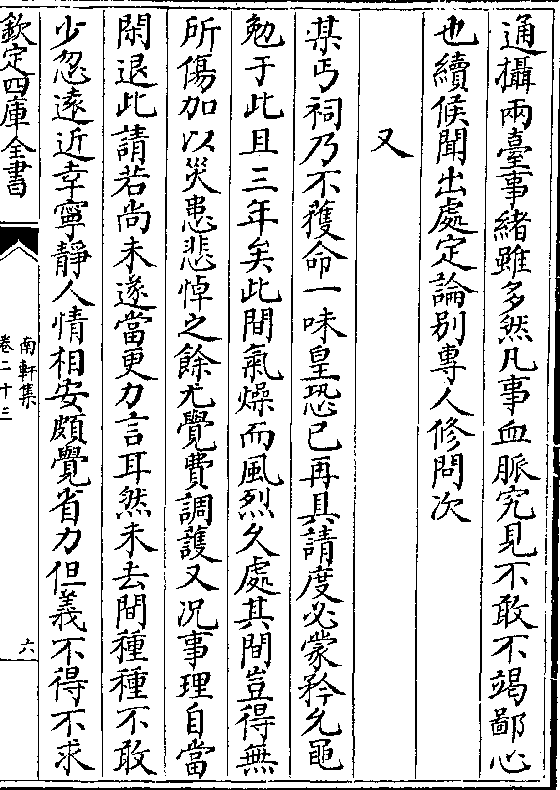 通攝兩臺事緒雖多然凡事血脈究見不敢不竭鄙心
也續候聞出處定論别專人修問次
又
某丐祠乃不獲命一味皇恐已再具請度必蒙矜允黽
勉于此且三年矣此間氣燥而風烈久處其間豈得無
所傷加以災患悲悼之餘尤覺費調護又况事理自當
閑退此請若尚未遂當更力言耳然未去間種種不敢
少忽遠近幸寧靜人情相安頗覺省力但義不得不求
欽定四庫全書
南軒集
卷二十三
六